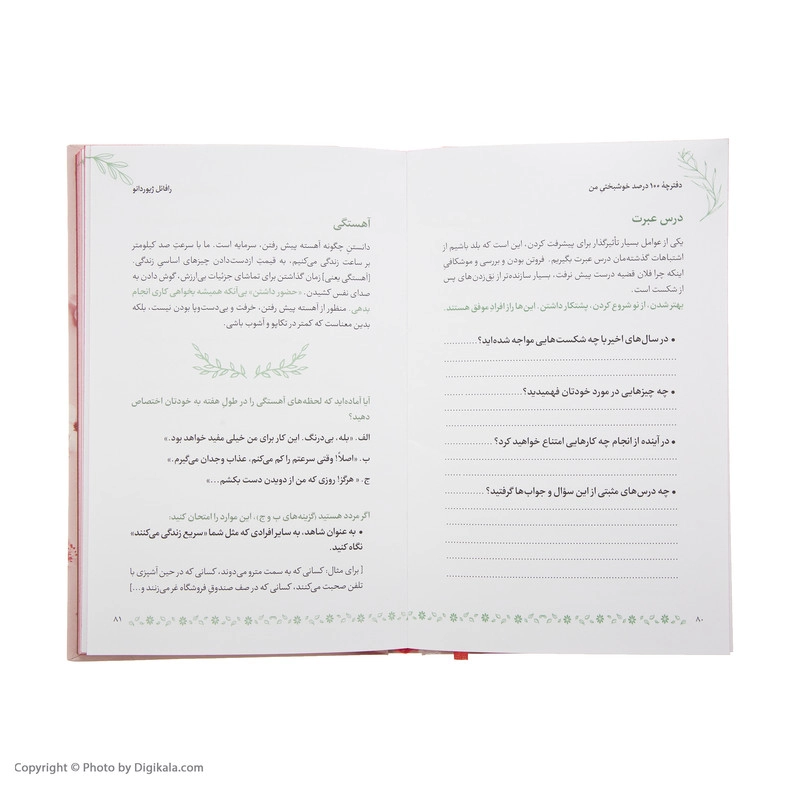 دفترچهٔ ۱۰۰ درصد خوشبختی من
درس عبرت
یکی از عوامل بسیار تأثیرگذار برای پیشرفت کردن، این است که بلد باشیم از
اشتباهات گذشته‌مان درس عبرت بگیریم. فروتن بودن و بررسی و موشکافی
اینکه چرا فلان قضیه درست پیش نرفت، بسیار سازنده‌تر از نق‌زدن‌های پس
از شکست است.
بهتر شدن، از نو شروع کردن، پشتکار داشتن. این‌ها راز افرادِ موفق هستند.
• در سال‌های اخیر با چه شکست‌هایی مواجه شده‌اید؟
• چه چیزهایی در مورد خودتان فهمیدید؟
• در آینده از انجام چه کارهایی امتناع خواهید کرد؟
• چه درس‌های مثبتی از این سؤال و جواب‌ها گرفتید؟
۸۰
رافائل ژیوردانو
آهستگی
دانستنِ چگونه آهسته پیش رفتن، سرمایه است. ما با سرعتِ صد کیلومتر
بر ساعت زندگی می‌کنیم، به قیمتِ ازدست‌دادن چیزهای اساسیِ زندگی.
[آهستگی یعنی] زمان گذاشتن برای تماشای جزئیات بی‌ارزش، گوش دادن به
صدای نفس کشیدن. «حضور داشتن» بی‌آنکه همیشه بخواهی کاری انجام
بدهی. منظور از آهسته پیش رفتن، خرفت و بی‌دست‌وپا بودن نیست، بلکه
بدین معناست که کمتر در تکاپو و آشوب باشی.
آیا آماده‌اید که لحظه‌های آهستگی را در طولِ هفته به خودتان اختصاص
دهید؟
الف. «بله، بی‌درنگ. این کار برای من خیلی مفید خواهد بود.»
ب. «اصلاً! وقتی سرعتم را کم می‌کنم، عذاب وجدان می‌گیرم.»
ج. «هرگز! روزی که من از دویدن دست بکشم...»
اگر مردد هستید (گزینه‌های ب و ج)، این موارد را امتحان کنید:
• به عنوان شاهد، به سایر افرادی که مثل شما «سریع زندگی می‌کنند»
نگاه کنید.
[برای مثال: کسانی که به سمت مترو می‌دوند، کسانی که در حین آشپزی با
تلفن صحبت می‌کنند، کسانی که در صف صندوقِ فروشگاه غر می‌زنند و...]
۸۱
Copyright © Photo by Digikala.com